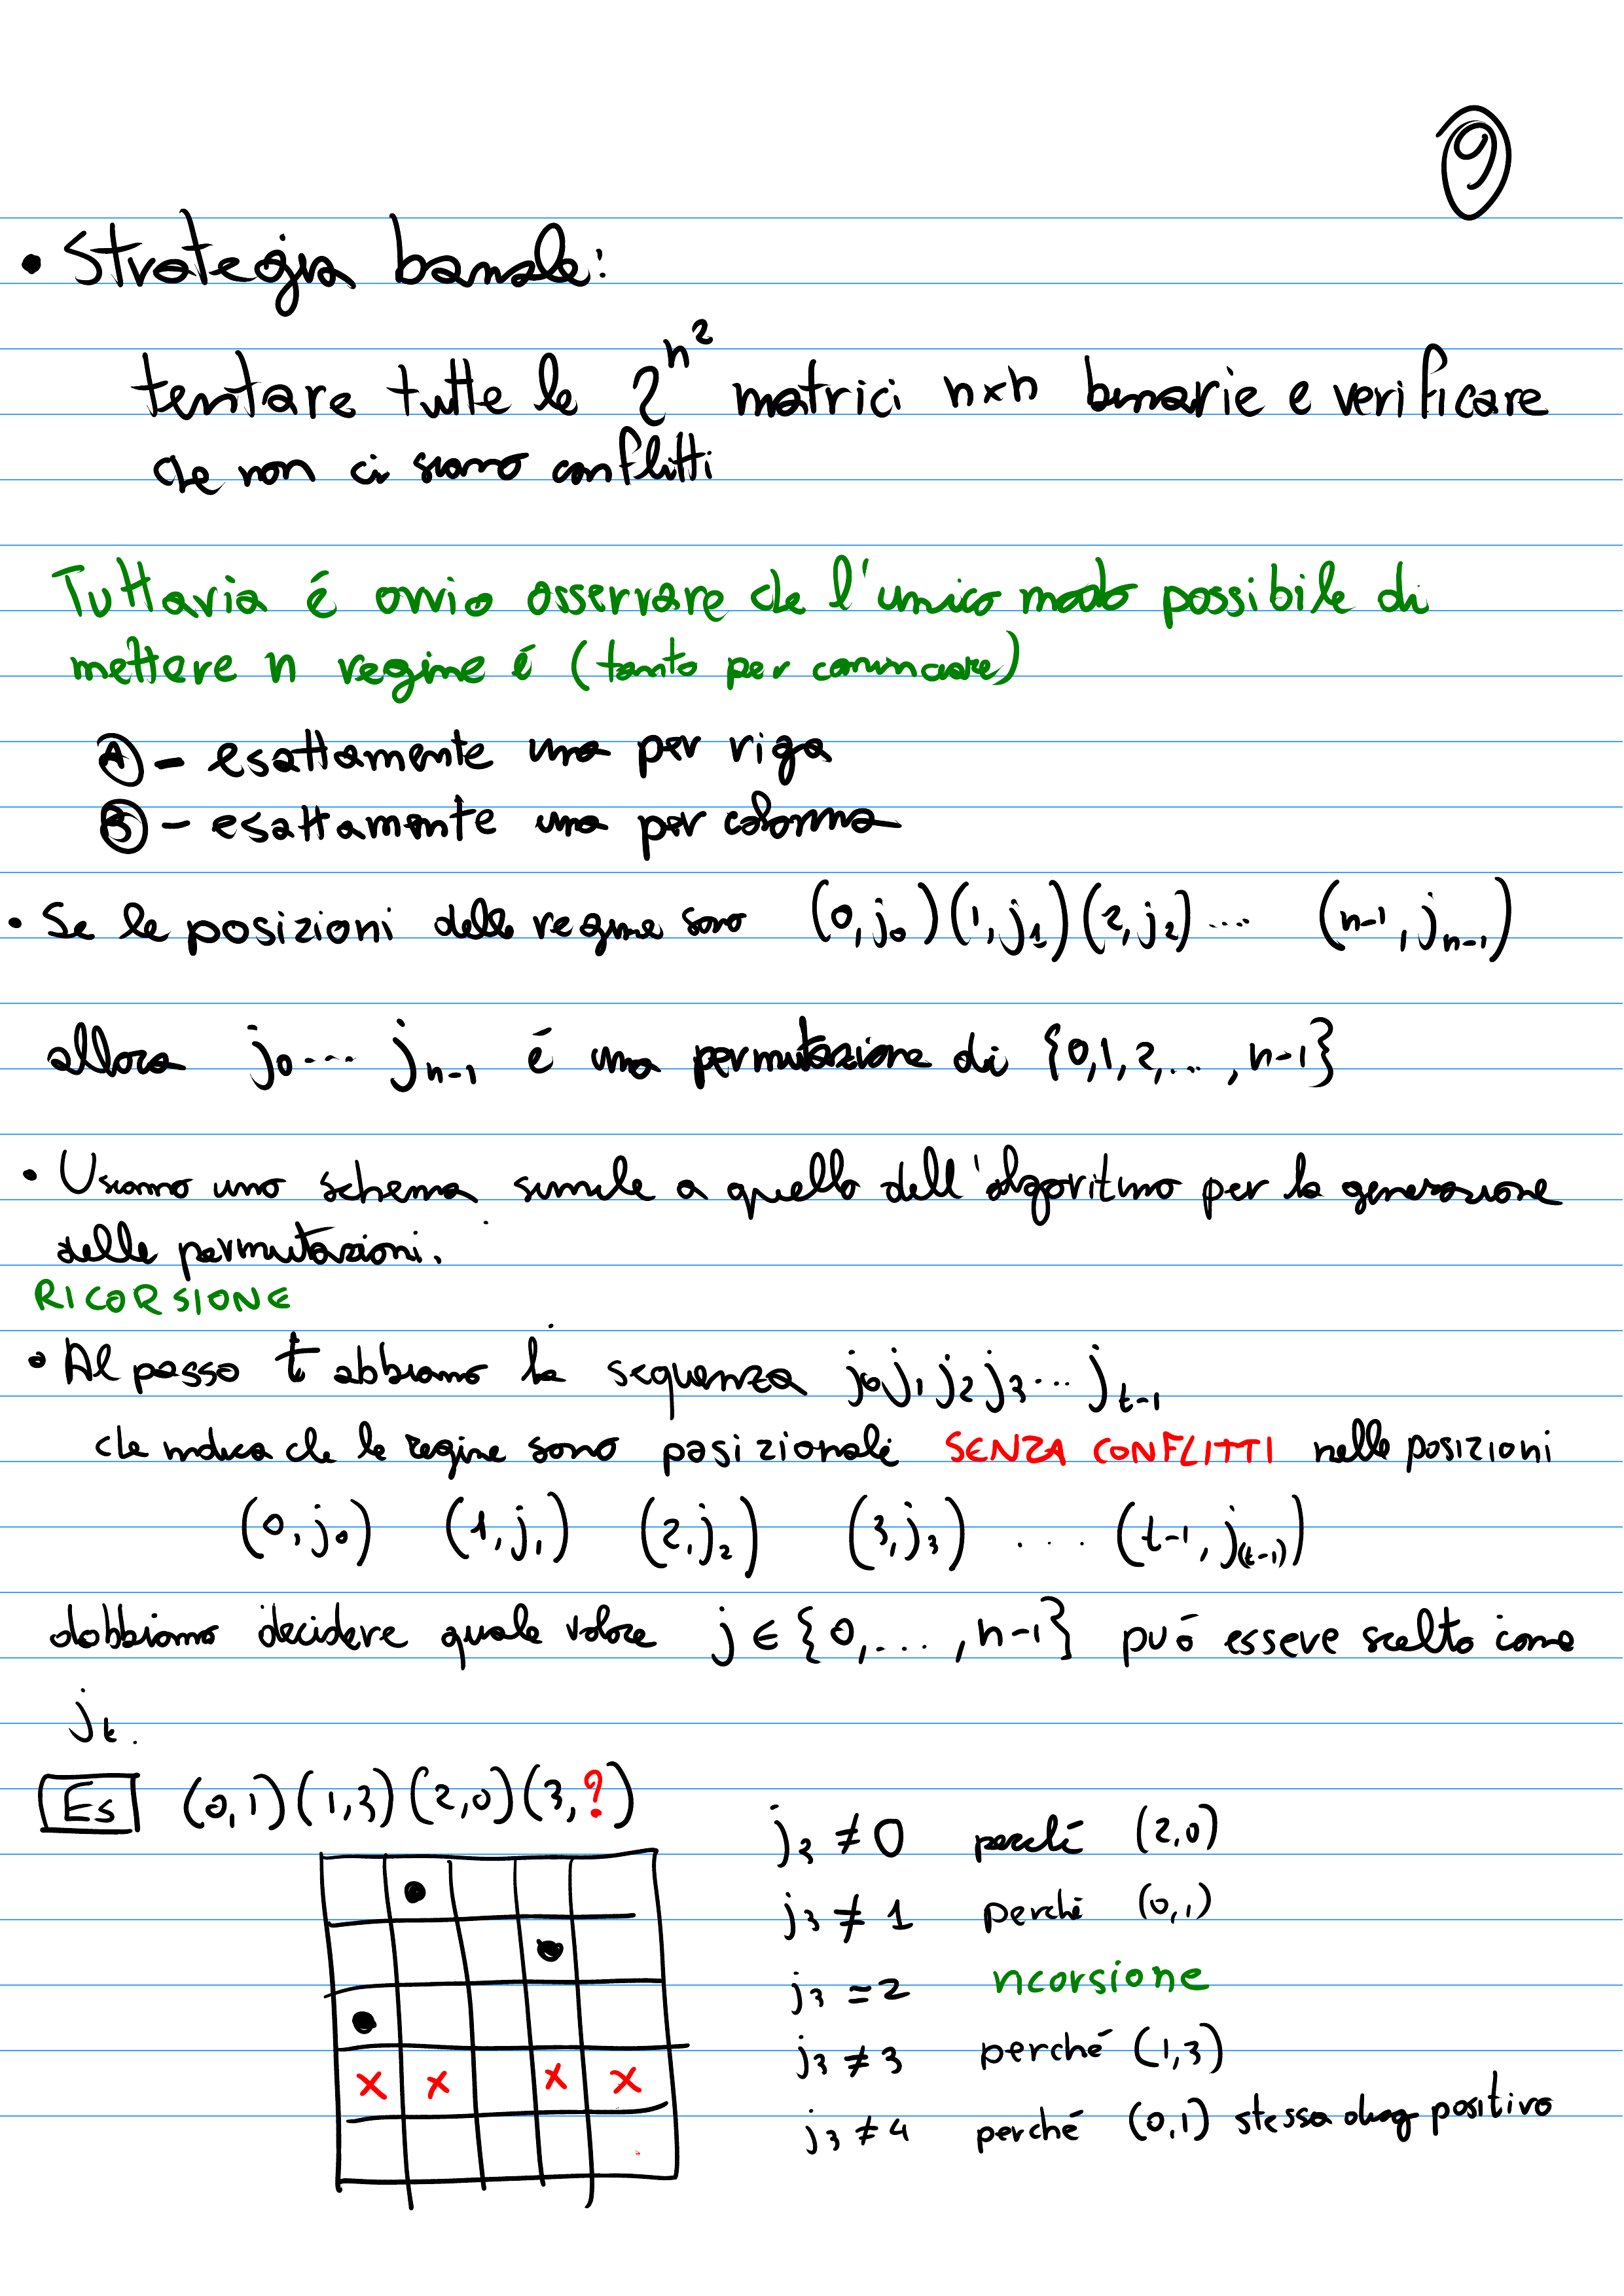 9
• Strategia banale:
tentare tutte le 2^n^2 matrici n×n binarie e verificare
che non ci siano conflitti
Tuttavia é ovvio osservare che l'unico modo possibile di
mettere n regine é (tanto per cominciare)
Ⓐ - esattamente una per riga
Ⓑ - esattamente una per colonna
• Se le posizioni delle regine sono (0, j_0)(1, j_1)(2, j_2) .... (n-1, j_n-1)
allora j_0 .... j_n-1 é una permutazione di {0,1,2,..., n-1}
• Usiamo uno schema simile a quello dell'algoritmo per la generazione
delle permutazioni.
RICORSIONE
• Al passo t abbiamo la sequenza j_0 j_1 j_2 j_3 ... j_t-1
che indica che le regine sono posizionate SENZA CONFLITTI nelle posizioni
(0, j_0) (1, j_1) (2, j_2) (3, j_3) .... (t-1, j_(t-1))
dobbiamo decidere quale valore j ∈ {0,..., n-1} puó essere scelto come
j_t.
Es (0,1)(1,3)(2,0)(3,?)
j_3 ≠ 0 perché (2,0)
j_3 ≠ 1 perché (0,1)
j_3 = 2 ricorsione
j_3 ≠ 3 perché (1,3)
x x x x
j_3 ≠ 4 perché (0,1) stessa diag positivo